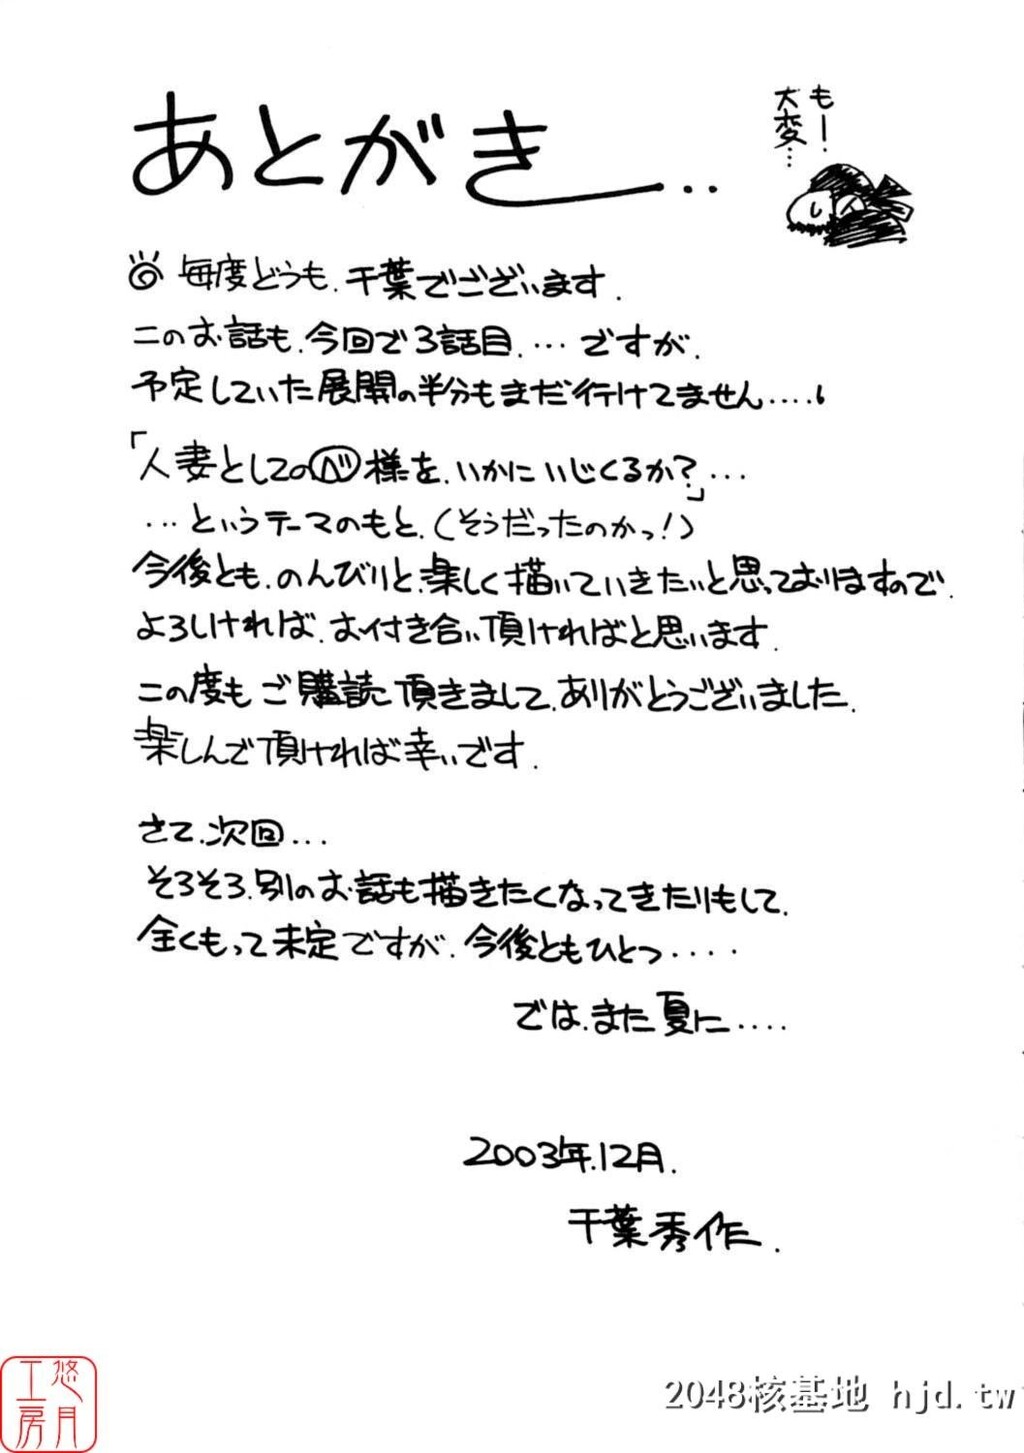 あとがき..
もー!
大変...
毎度どうも.千葉でございます.
このお話も.今回で3話目....ですが.
予定していた展開の半分もまだ行けてません....
「人妻としてのベ様を.いかにいじくるか?」...
...というテーマのもと.(そうだったのかっ!)
今後とも.のんびりと.楽しく描いていきたいと思っておりますので.
よろしければ.お付き合い頂ければと思います.
この度もご購読頂きまして.ありがとうございました.
楽しんで頂ければ幸いです.
さて.次回...
そろそろ.別のお話も描きたくなってきたりもして.
全くもって未定ですが.今後ともひとつ....
では.また夏に....
2003年.12月.
千葉秀作.
悠月
工房
2048核基地 hjd.tw